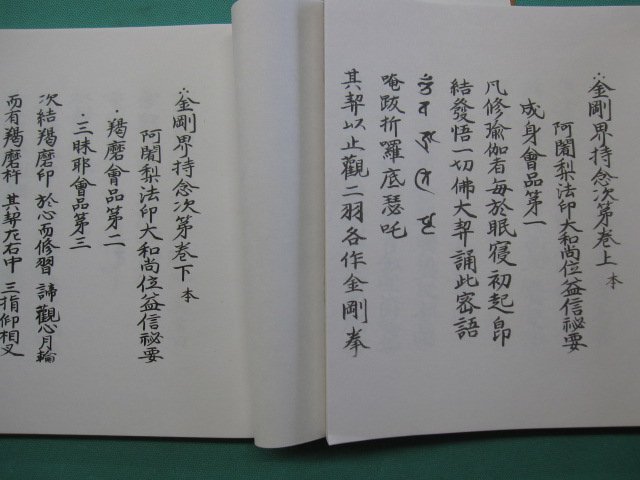 ∴金剛界持念次第卷上 本
阿闍梨法印大和尚位益信祕要
成身會品第一
凡修瑜伽者每於眠寢初起即
結發悟一切佛大契誦此密語
唵跋折羅底瑟吒
其契以止觀二羽各作金剛拳
∴金剛界持念次第卷下 本
阿闍梨法印大和尚位益信祕要
・羯磨會品第二
・三昧耶會品第三
次結羯磨印 於心而修習 諦觀心月輪
而有羯磨杵 其契左右中 三指仰相叉